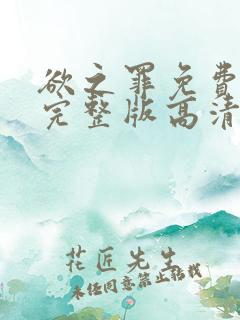 欲之罪免費
完整版高清
花匠先生
未经同意禁止转载